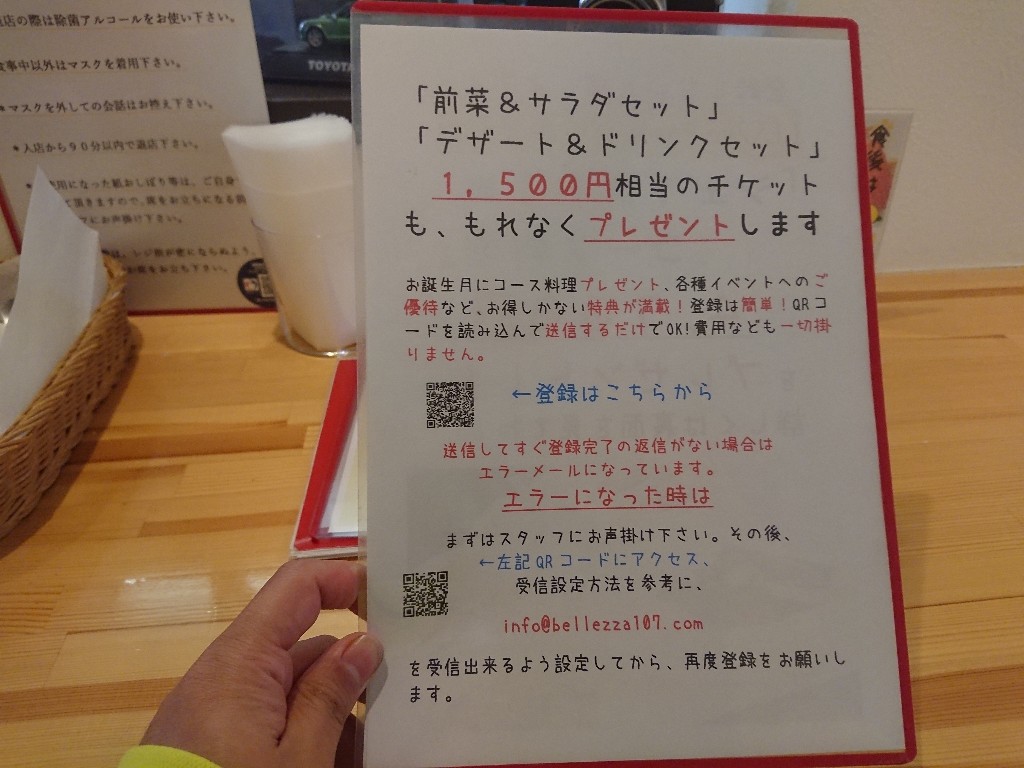 店の際は除菌アルコールをお使い下さい。
事中以外はマスクを着用下さい。
＊マスクを外しての会話はお控え下さい。
＊入店から９０分以内で退店下さい。
になった紙おしぼり等は、ご自身
頂きますので、席をお立ちになる前
にお声掛け下さい。
は、レジ前が密にならぬよう、
お席をお立ち下さい。
TOYOTA
食後は
「前菜＆サラダセット」
「デザート＆ドリンクセット」
１，５００円相当のチケット
も、もれなくプレゼントします
お誕生月にコース料理プレゼント、各種イベントへのご
優待など、お得しかない特典が満載！登録は簡単！QRコ
ードを読み込んで送信するだけでOK!費用なども一切掛
りません。
←登録はこちらから
送信してすぐ登録完了の返信がない場合は
エラーメールになっています。
エラーになった時は
まずはスタッフにお声掛け下さい。その後、
←左記QRコードにアクセス、
受信設定方法を参考に、
info@bellezza107.com
を受信出来るよう設定してから、再度登録をお願いし
ます。